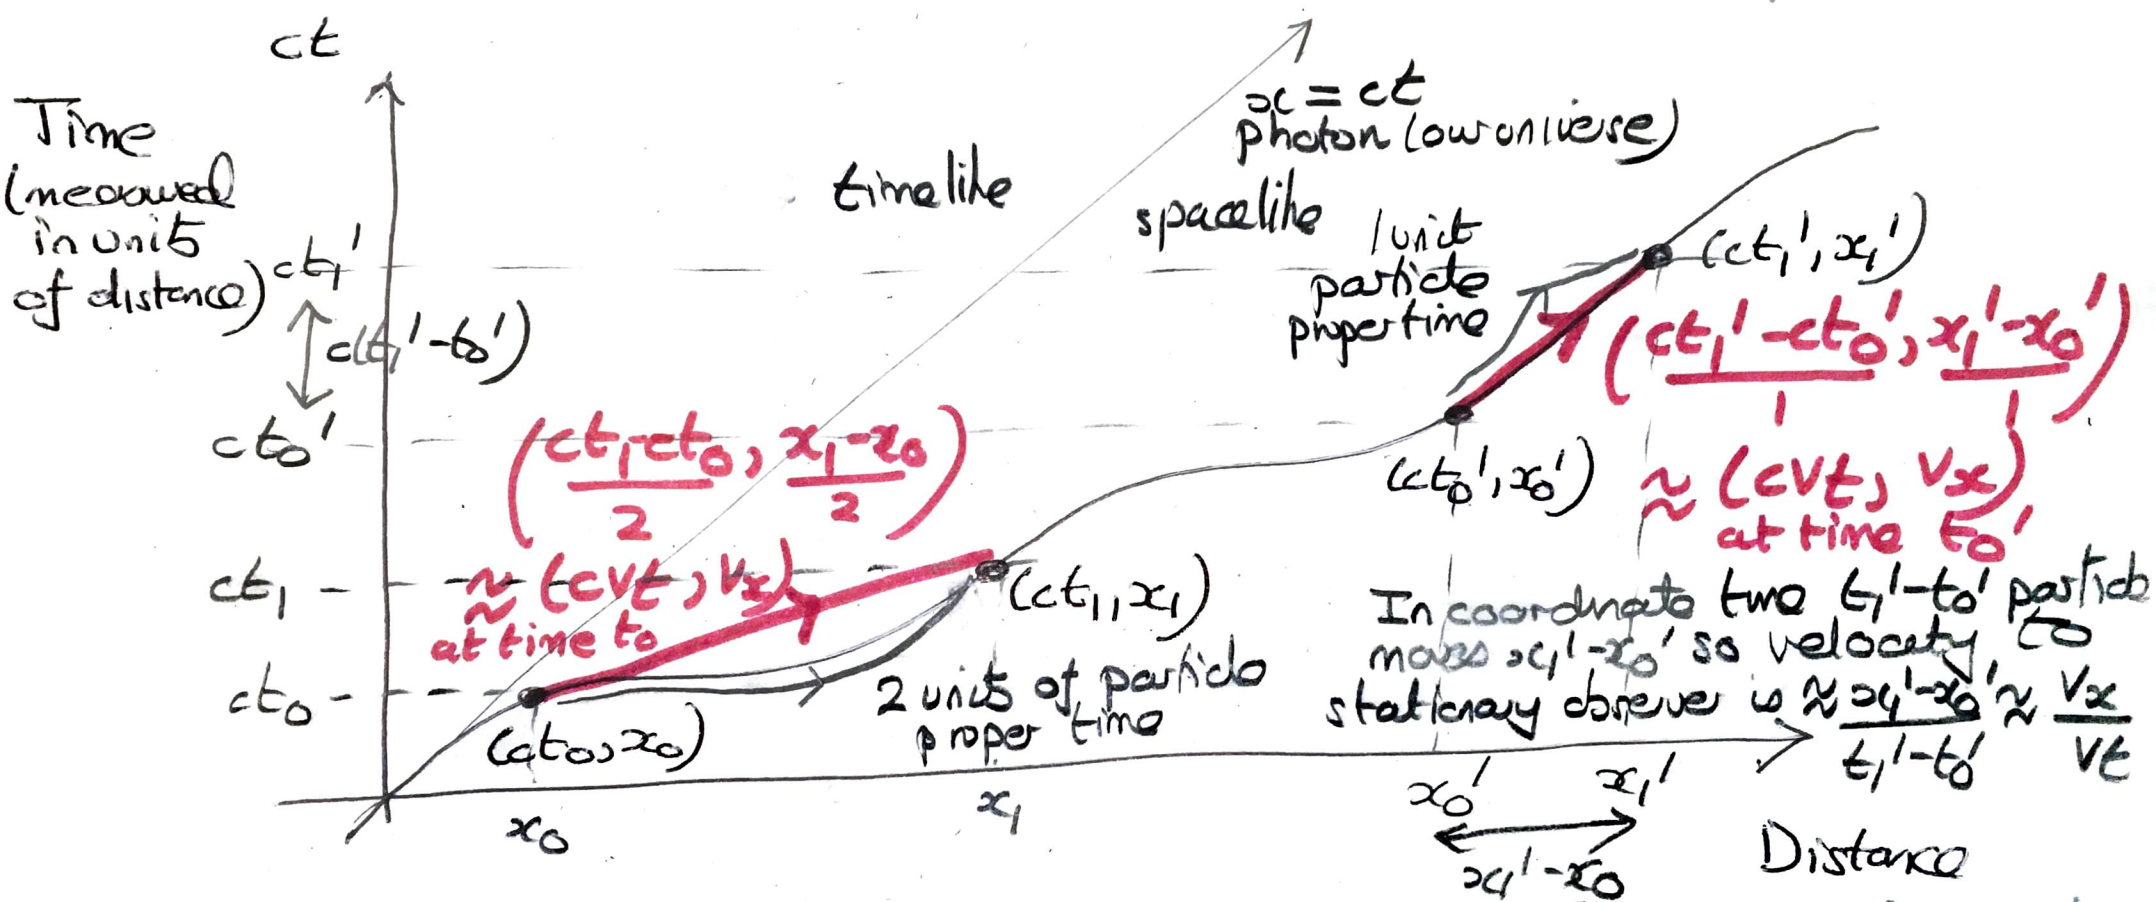 ct
Time
(measured
in units
of distance)
ct₁'
c(t₁'-t₀')
ct₀'
ct₁
ct₀
timelike
spacelike
x = ct
photon (our universe)
1 unit
particle
proper time
(ct₁', x₁')
(ct₁'-ct₀'/1, x₁'-x₀'/1)
(ct₀', x₀')
≈ (cVt, Vx)
at time t₀'
(ct₁-ct₀/2, x₁-x₀/2)
≈ (cVt, Vx)
at time t₀
(ct₁, x₁)
(ct₀, x₀)
2 units of particle
proper time
In coordinate time t₁'-t₀' particle
moves x₁'-x₀' so velocity to
stationary observer is ≈ x₁'-x₀'/t₁'-t₀' ≈ Vx/Vt
x₀
x₁
x₀'
x₁'
x₁'-x₀
Distance